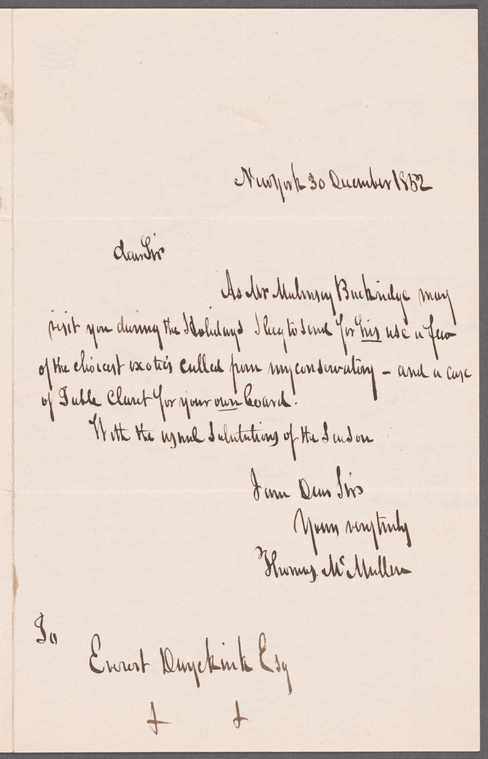 New York 30 December 1852
dear Sir
As Mr Malmsey Buckridge may
visit you during the Holidays I beg to send for his use a few
of the choicest exotics culled from my conservatory – and a case
of Table Claret for your own board.
With the usual Salutations of the Season
I am Dear Sir
Yours very truly
Thomas McMullen
To
Evert Duyckink Esq